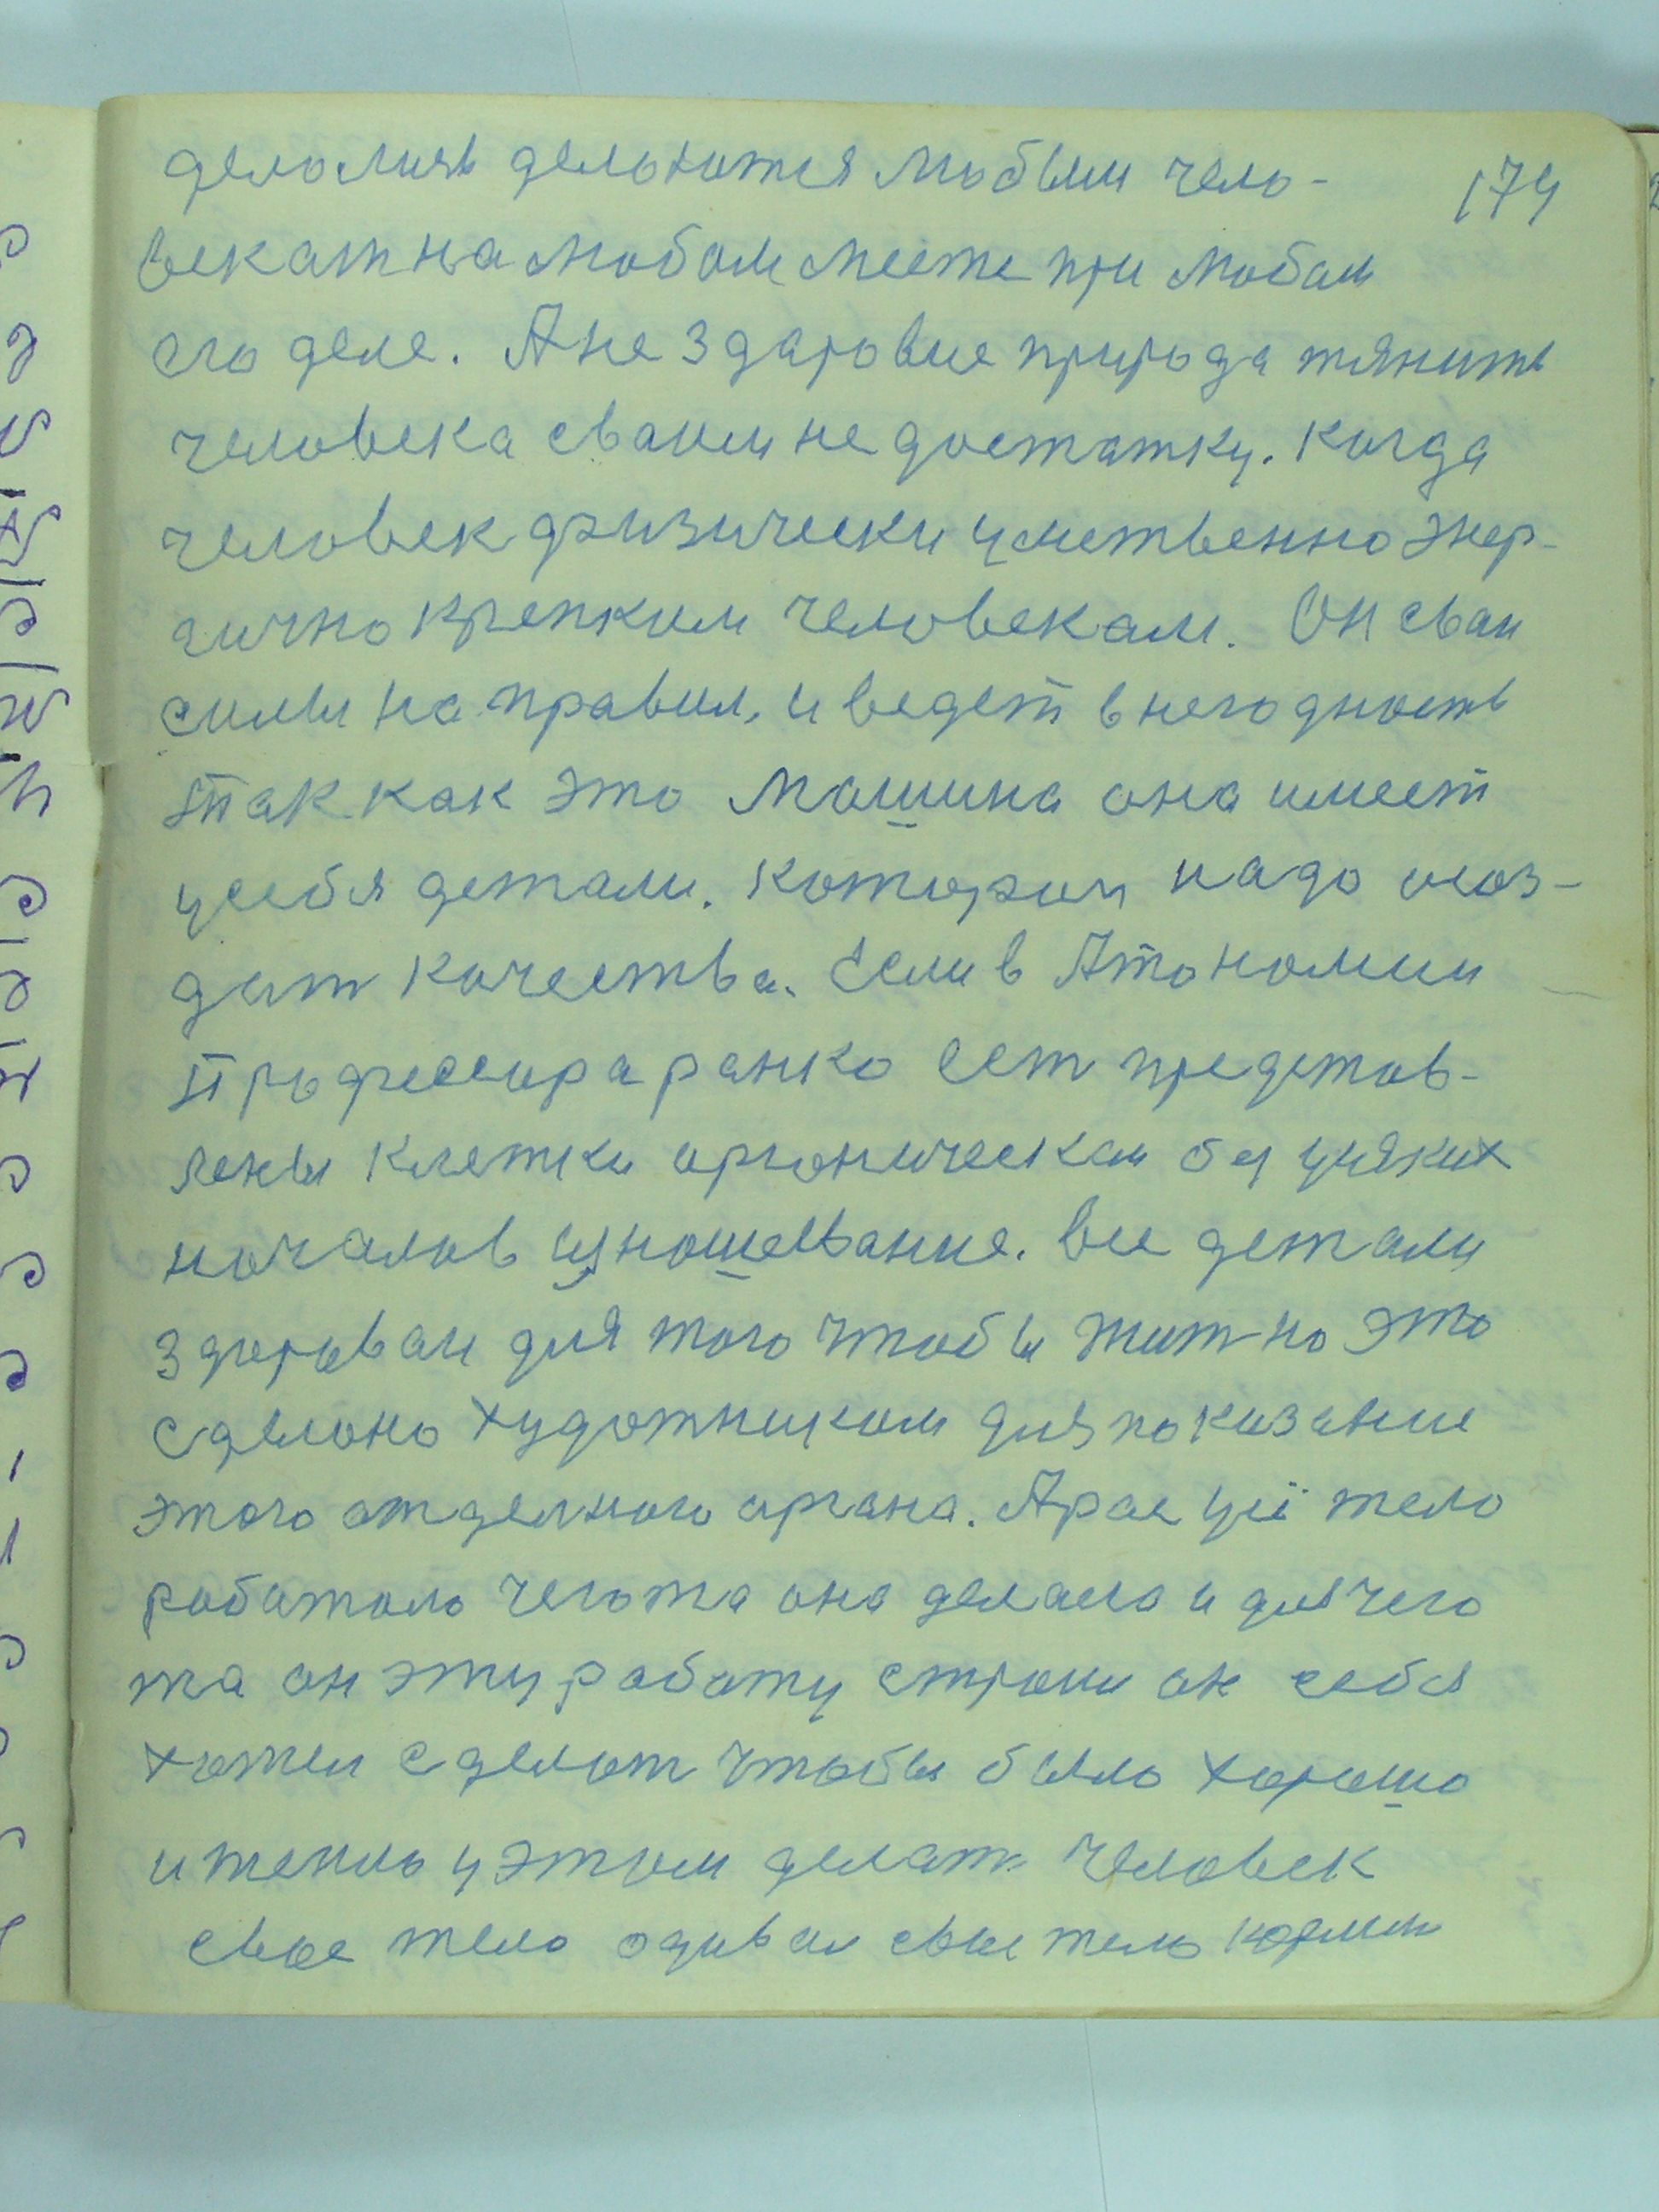 174
делолись делоитмя любым чело-
векат на любом месте при любом
его деле. А не здаровие природа тянить
человека сваим не достатку. когда
человек физически умственно энер-
гично крепким человекам. Он сваи
силы на правил, и ведет в негодность
так как это машина она имеет
у себя детали. котораи надо
дат качества. Если в Атономии
Профессора ранко ест представ-
лены клетки органическаи без усяких
началов изношевание. Все детали
здороваи для того чтобы жит но это
сделоно художником для показание
этого отделного органа. А рас усё тело
работало чегота она делала и для чего
та он эту работу строил он себя
хотел сделат чтобы было хорошо
и тепло у этом делат человек
свое тело одивал свое тело кормил